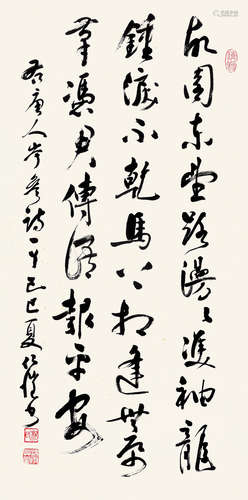 故园东望路漫漫双袖龍
鍾淚不乾馬上相逢無紙
筆憑君傳語報平安
右唐人岑參詩一首己巳夏